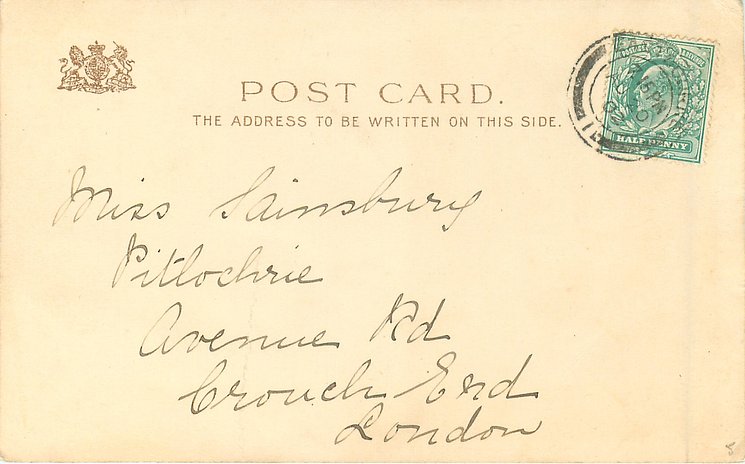 POST CARD.
THE ADDRESS TO BE WRITTEN ON THIS SIDE.
POSTAGE
HALFPENNY
Miss Sainsbury
Pitlochrie
Avenue Rd
Crouch End
London